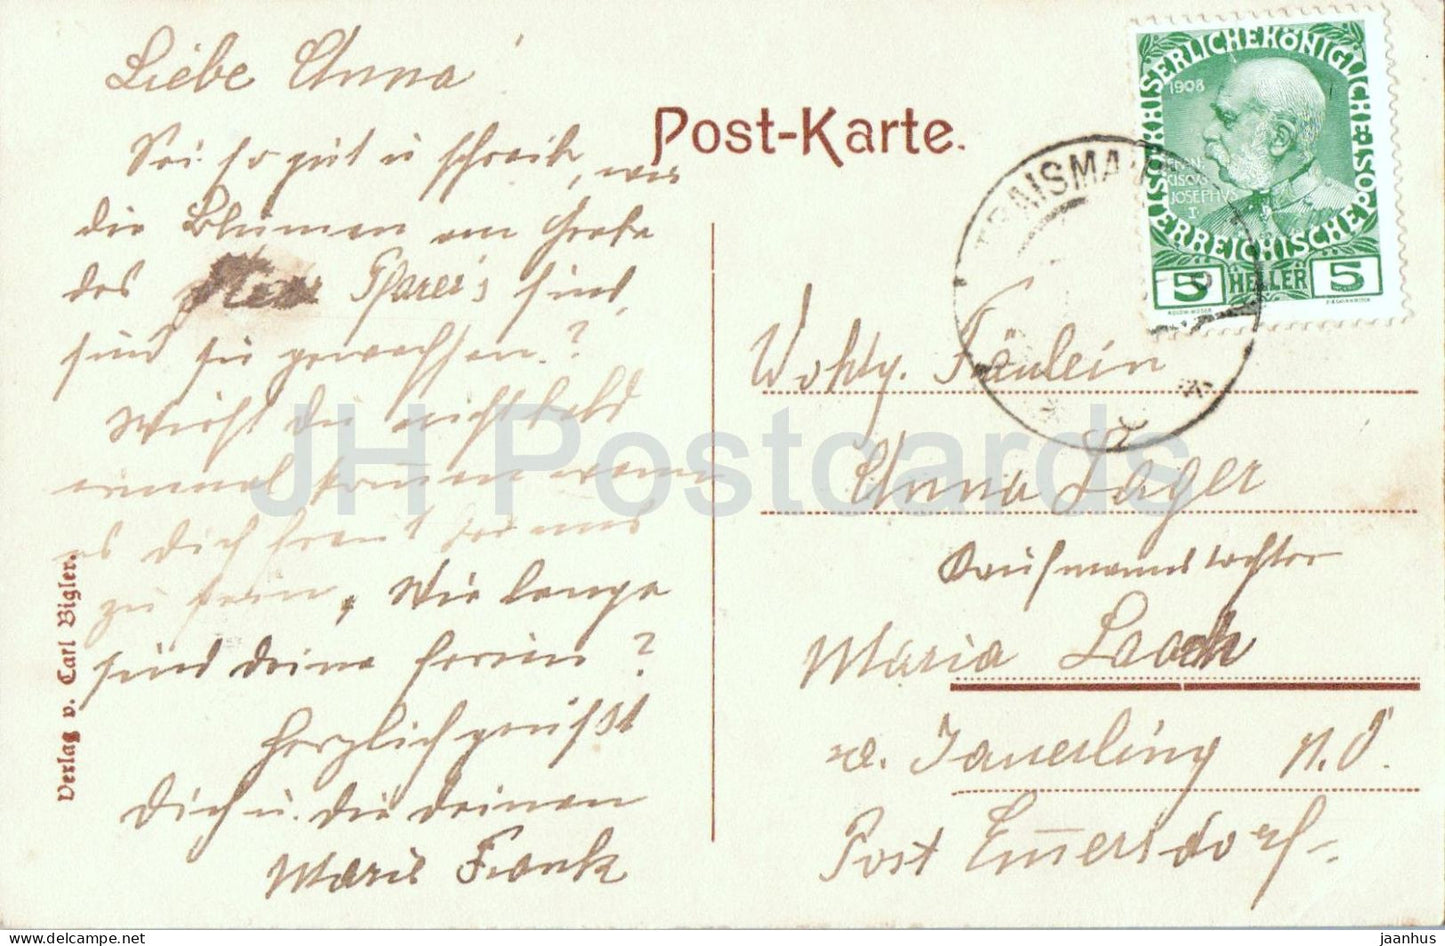 Liebe Anna
Sei so gut u schreib, was
die Blumen am Grabe
des Pfarrers sind,
sind sie gewachsen?
Wirst du nicht bald
einmal kommen wenn
es dich freut bei uns
zu sein, Wie lange
sind deine Ferien?
Herzlich grüßt
Dich u. die deinen
Marie Frank
Verlag v. Carl Bigler.
Post-Karte.
KAISERLICHE KÖNIGLICHE ÖSTERREICHISCHE POST
1908
FRANCISCVS JOSEPHVS I
5 HELLER 5
Wohlg. Fräulein
Anna Lager
Kaufmannstochter
Maria Laach
a. Jauerling N.Ö.
Post Emmersdorf
JH Postcards
www.delcampe.net
jaanhus